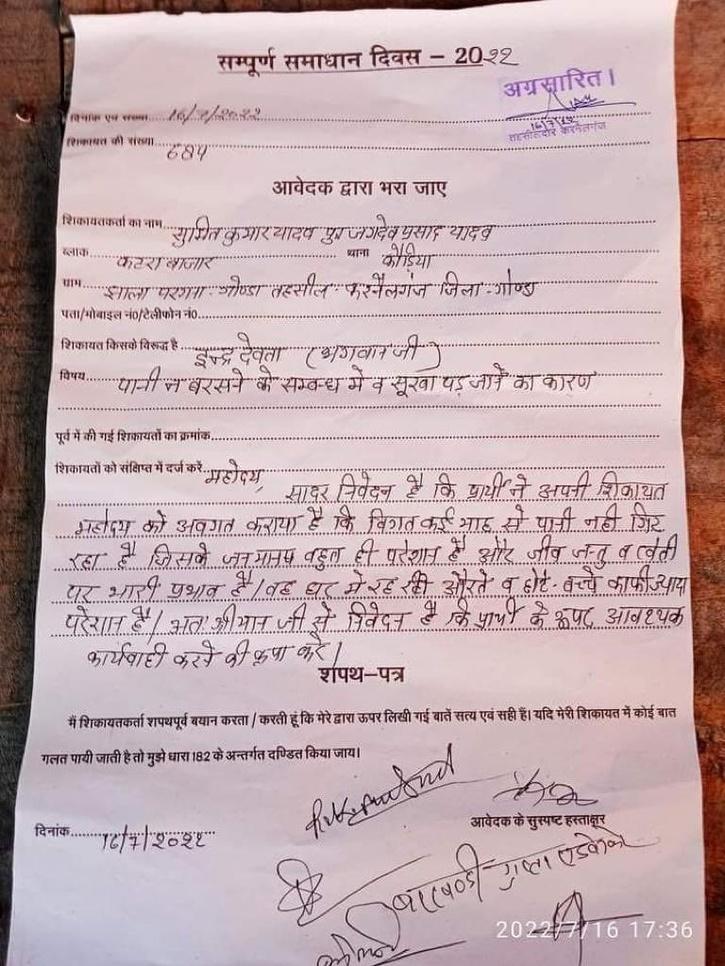 सम्पूर्ण समाधान दिवस – 2022
अग्रसारित।
16/7/22
तहसीलदार करनैलगंज
दिनांक एवं संख्या 16/7/2022
शिकायत की संख्या 684
आवेदक द्वारा भरा जाए
शिकायतकर्ता का नाम सुमित कुमार यादव पुत्र जगदेव प्रसाद यादव
ब्लाक कटरा बाजार थाना कौड़िया
ग्राम झाला परगना-गोण्डा तहसील-करनैलगंज जिला-गोण्डा
पता/मोबाइल नं0/टेलीफोन नं0
शिकायत किसके विरूद्ध है इन्द्र देवता (भगवान जी)
विषय पानी न बरसने के सम्बन्ध में व सूखा पड़ जाने का कारण
पूर्व में की गई शिकायतों का क्रमांक
शिकायतों को संक्षिप्त में दर्ज करें महोदय,
सादर निवेदन है कि प्रार्थी ने अपनी शिकायत
महोदय को अवगत कराया है कि विगत कई माह से पानी नही गिर
रहा है जिसके जनमानष बहुत ही परेशान है और जीव जन्तु व खेती
पर भारी प्रभाव है/ वह घर में रह रही औरते व छोटे-बच्चे काफी ज्यादा
परेशान है/ अतः श्रीमान जी से निवेदन है कि प्रार्थी के आवश्यक
कार्यवाही करने की कृपा करे/
शपथ–पत्र
मैं शिकायतकर्ता शपथपूर्व बयान करता / करती हूं कि मेरे द्वारा ऊपर लिखी गई बातें सत्य एवं सही हैं। यदि मेरी शिकायत में कोई बात
गलत पायी जाती है तो मुझे धारा 182 के अन्तर्गत दण्डित किया जाय।
दिनांक 16/7/2022
आवेदक के सुस्पष्ट हस्ताक्षर
गुप्ता एडवोकेट
2022/7/16 17:36